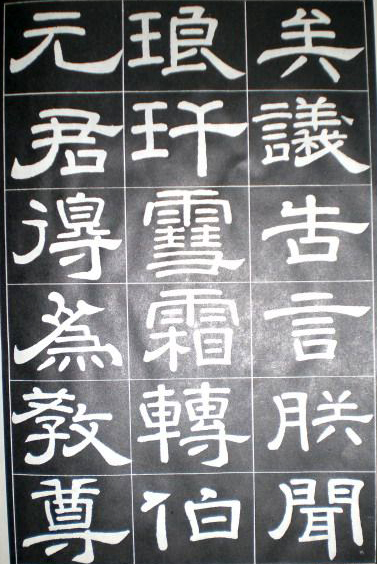 矣議告言朕聞
琅玕雪霜轉伯
元君得為教尊